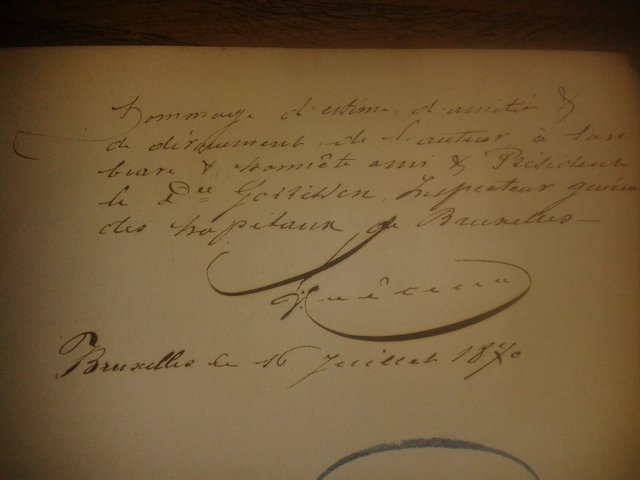 Hommage d'estime, d'amitié &
de dévouement de l'auteur à son
brave & honnête ami & Président
le Dr Gossissen, Inspecteur généra
des hopitaux de Bruxelles —
Bruxelles le 16 Juillet 1870